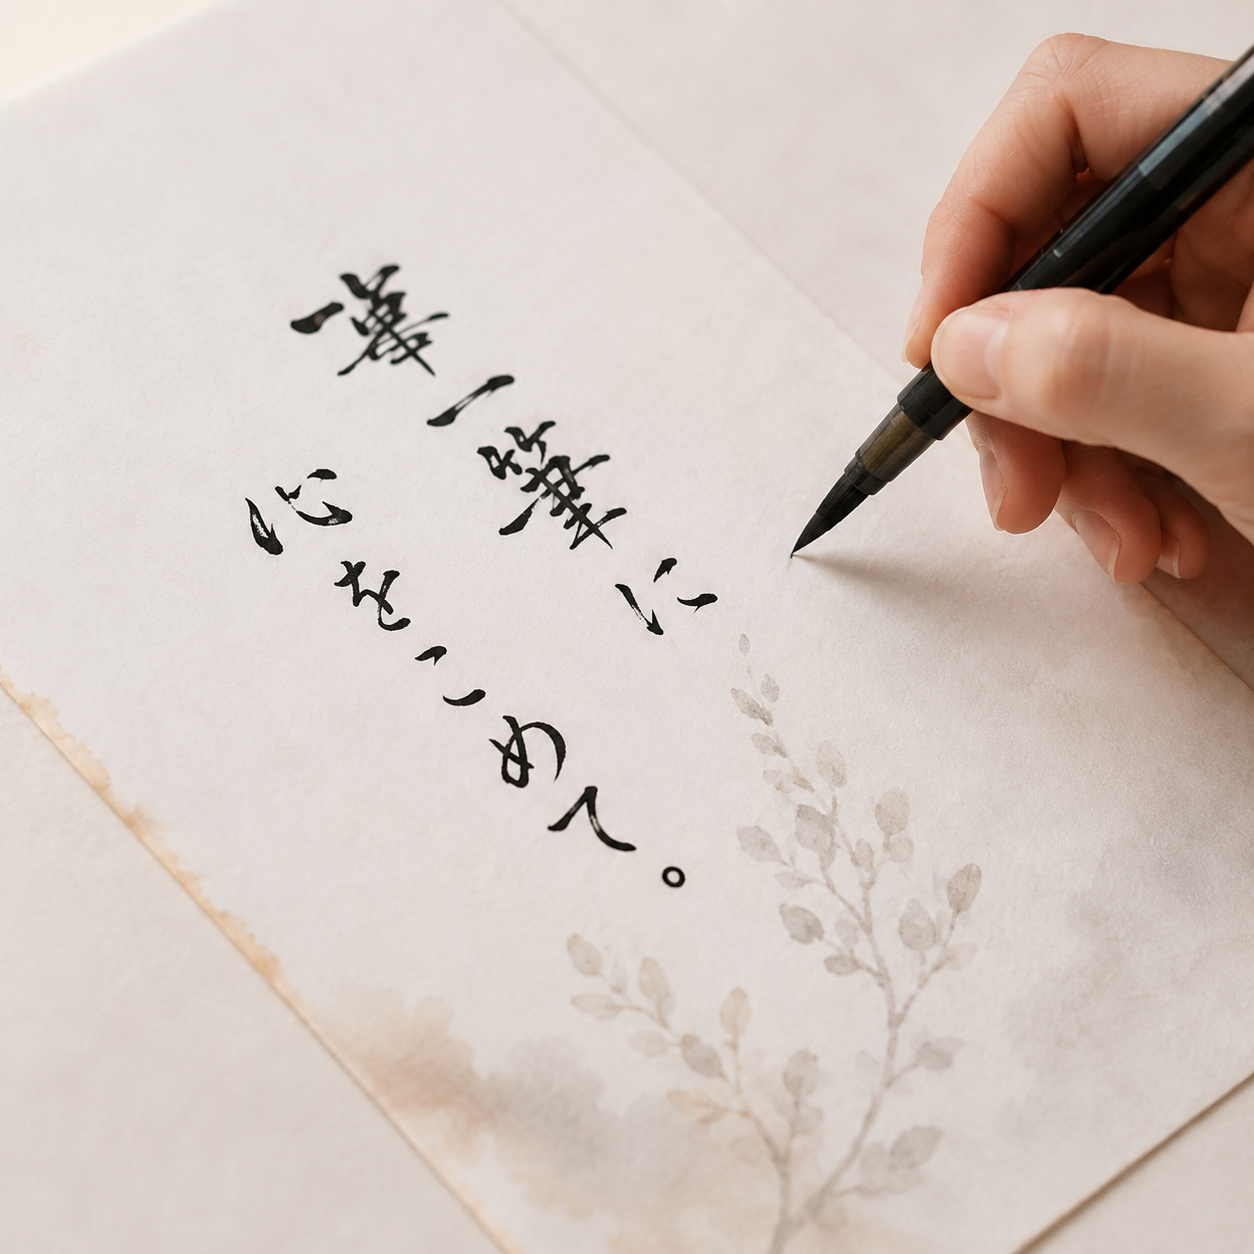 一筆一筆に
心をこめて。